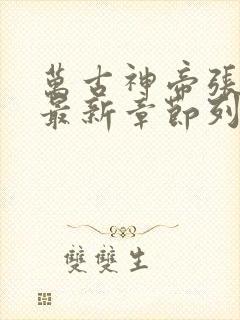 萬古神帝張
最新章節列
雙雙生